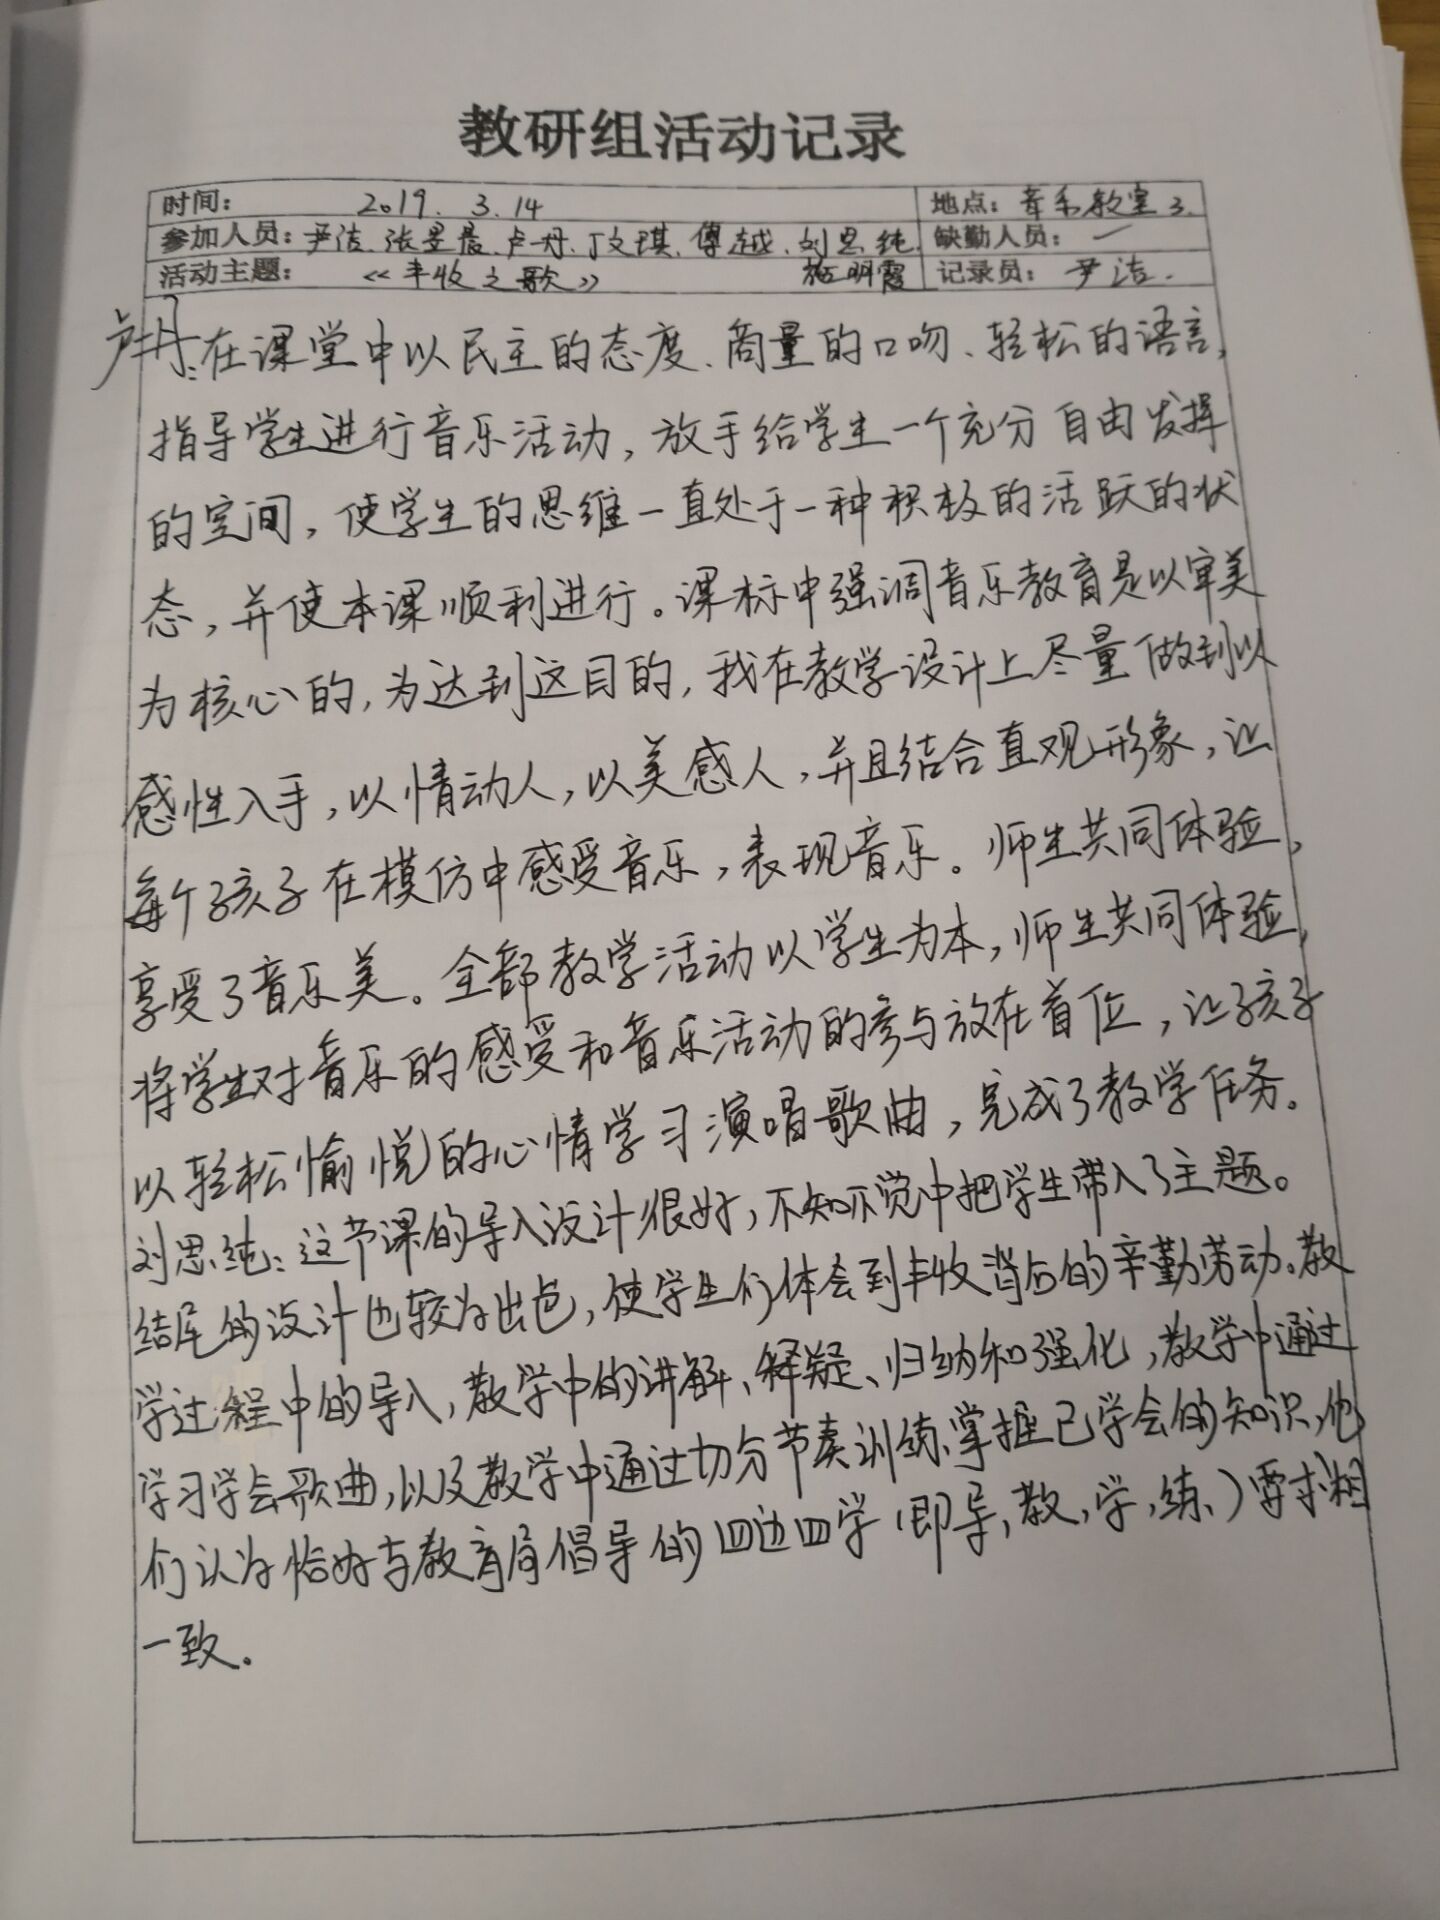 教研组活动记录
时间： 2019. 3. 14 地点：音乐教室3.
参加人员：尹洁、张昱晨、卢丹、丁文琪、傅越、刘思纯、 缺勤人员：—
活动主题：《丰收之歌》 施明霞 记录员：尹洁.
卢丹：在课堂中以民主的态度、商量的口吻、轻松的语言，
指导学生进行音乐活动，放手给学生一个充分自由发挥
的空间，使学生的思维一直处于一种积极的活跃的状
态，并使本课顺利进行。课标中强调音乐教育是以审美
为核心的，为达到这目的，我在教学设计上尽量做到以
感性入手，以情动人，以美感人，并且结合直观形象，让
每个孩子在模仿中感受音乐，表现音乐。师生共同体验，
享受了音乐美。全部教学活动以学生为本，师生共同体验，
将学生对音乐的感受和音乐活动的参与放在首位，让孩子
以轻松愉悦的心情学习演唱歌曲，完成了教学任务。
刘思纯：这节课的导入设计很好，不知不觉中把学生带入了主题。
结尾的设计也较为出色，使学生们体会到丰收背后的辛勤劳动。教
学过程中的导入，教学中的讲解、释疑、归纳和强化，教学中通过
学习学会歌曲，以及教学中通过切分节奏训练掌握已学会的知识，他
们认为恰好与教育局倡导的四边四学（即导，教，学，练）要求相
一致。